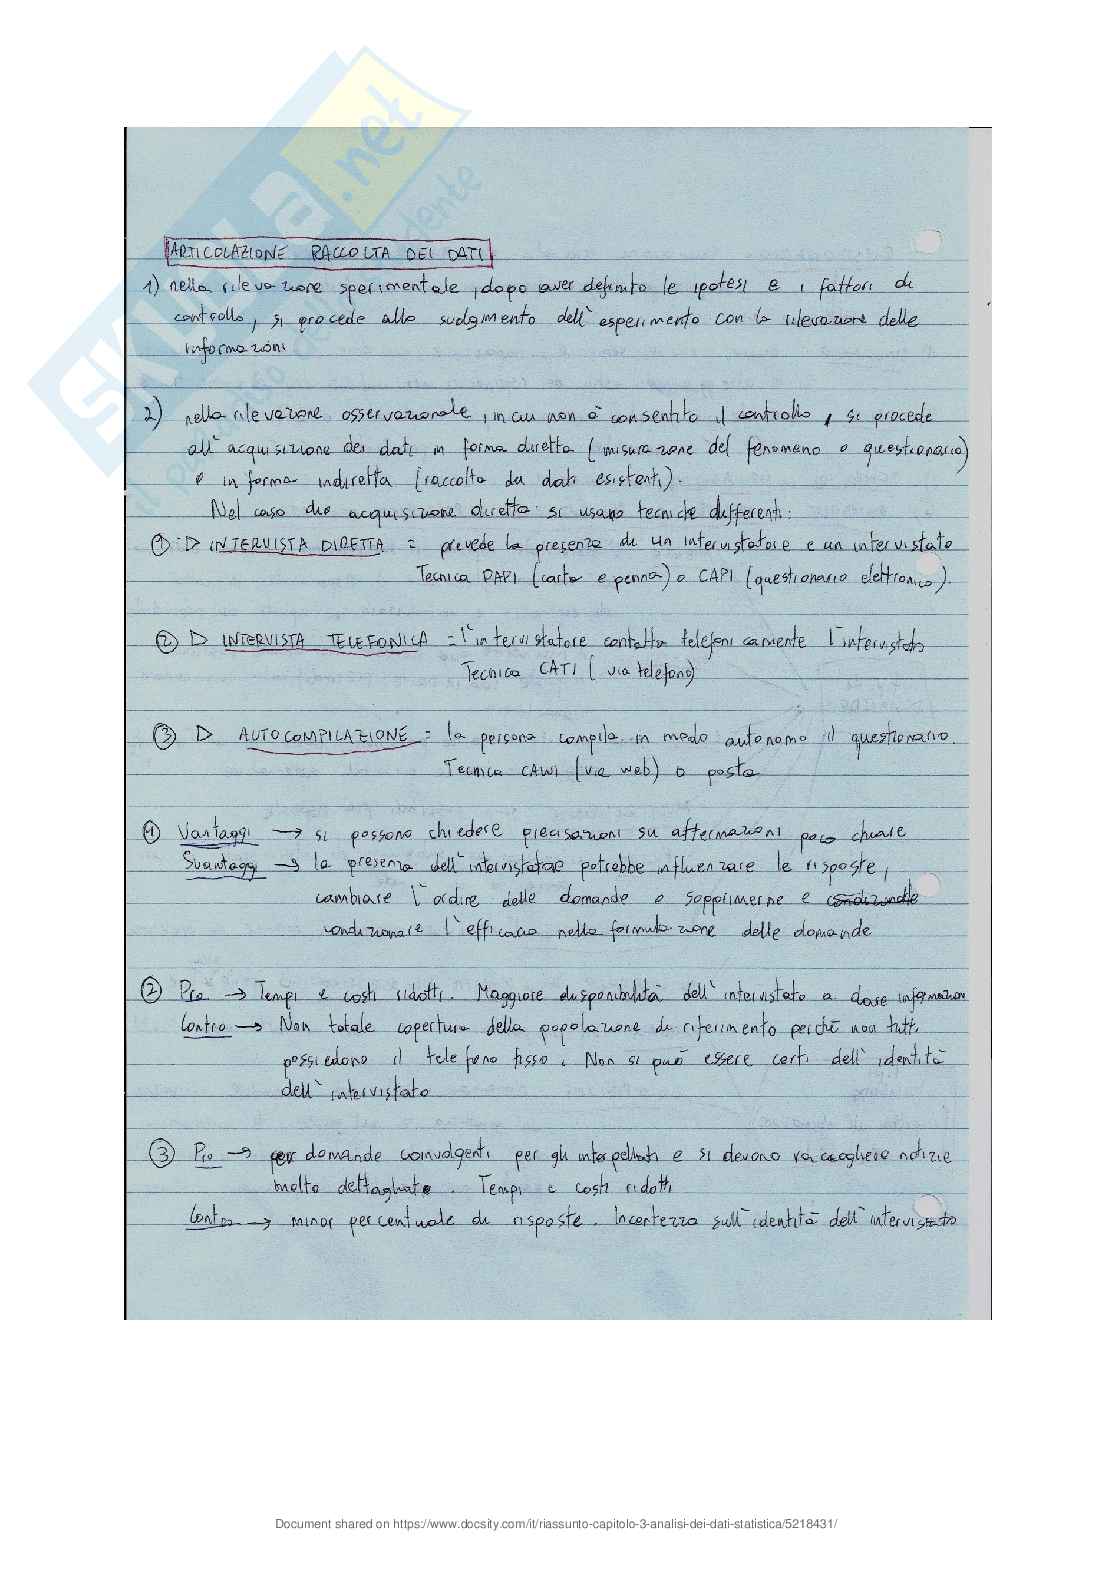 SKUOLA.net
ARTICOLAZIONE RACCOLTA DEI DATI
1) nella rilevazione sperimentale, dopo aver definito le ipotesi e i fattori di
controllo, si procede allo svolgimento dell'esperimento con la rilevazione delle
informazioni
2) nella rilevazione osservazionale, in cui non è consentito il controllo, si procede
all'acquisizione dei dati in forma diretta (misurazione del fenomeno o questionario)
o in forma indiretta (raccolta da dati esistenti).
Nel caso di acquisizione diretta si usano tecniche differenti:
① ▷ INTERVISTA DIRETTA = prevede la presenza di un intervistatore e un intervistato
Tecnica PAPI (carta e penna) o CAPI (questionario elettronico).
② ▷ INTERVISTA TELEFONICA = l'intervistatore contatta telefonicamente l'intervistato
Tecnica CATI (via telefono)
③ ▷ AUTOCOMPILAZIONE = la persona compila in modo autonomo il questionario.
Tecnica CAWI (via web) o posta
① Vantaggi → si possono chiedere precisazioni su affermazioni poco chiare
Svantaggi → la presenza dell'intervistatore potrebbe influenzare le risposte,
cambiare l'ordine delle domande o sopprimerne e
condizionare l'efficacia nella formulazione delle domande
② Pro → Tempi e costi ridotti. Maggiore disponibilità dell'intervistato a dare informazioni
Contro → Non totale copertura della popolazione di riferimento perché non tutti
possiedono il telefono fisso. Non si può essere certi dell'identità
dell'intervistato
③ Pro → per domande coinvolgenti per gli interpellati e si devono raccogliere notizie
molto dettagliate. Tempi e costi ridotti
Contro → minor percentuale di risposte. Incertezza sull'identità dell'intervistato
Document shared on https://www.docsity.com/it/riassunto-capitolo-3-analisi-dei-dati-statistica/5218431/